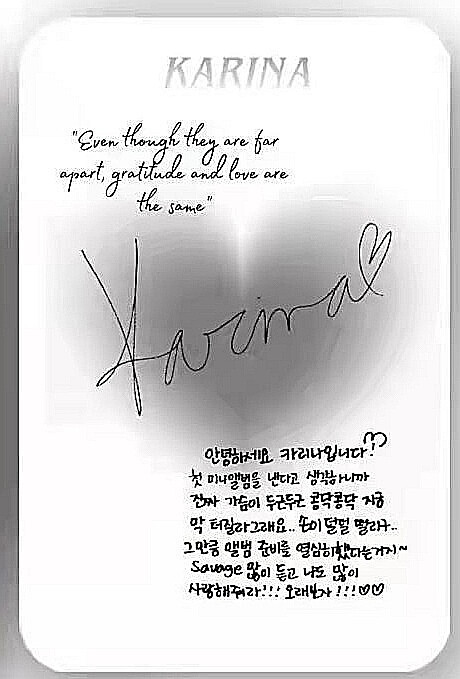 KARINA
"Even though they are far
apart, gratitude and love are
the same"
Karina♡
안녕하세요 카리나입니다!♡
첫 미니앨범을 낸다고 생각하니까
진짜 가슴이 두근두근 콩닥콩닥 지금
막 터질라그래요.. 손이 덜덜 떨리구..
그만큼 앨범 준비를 열심히했다는거지~
Savage 많이 듣고 나도 많이
사랑해줘라!!! 오래보자!!!♡♡